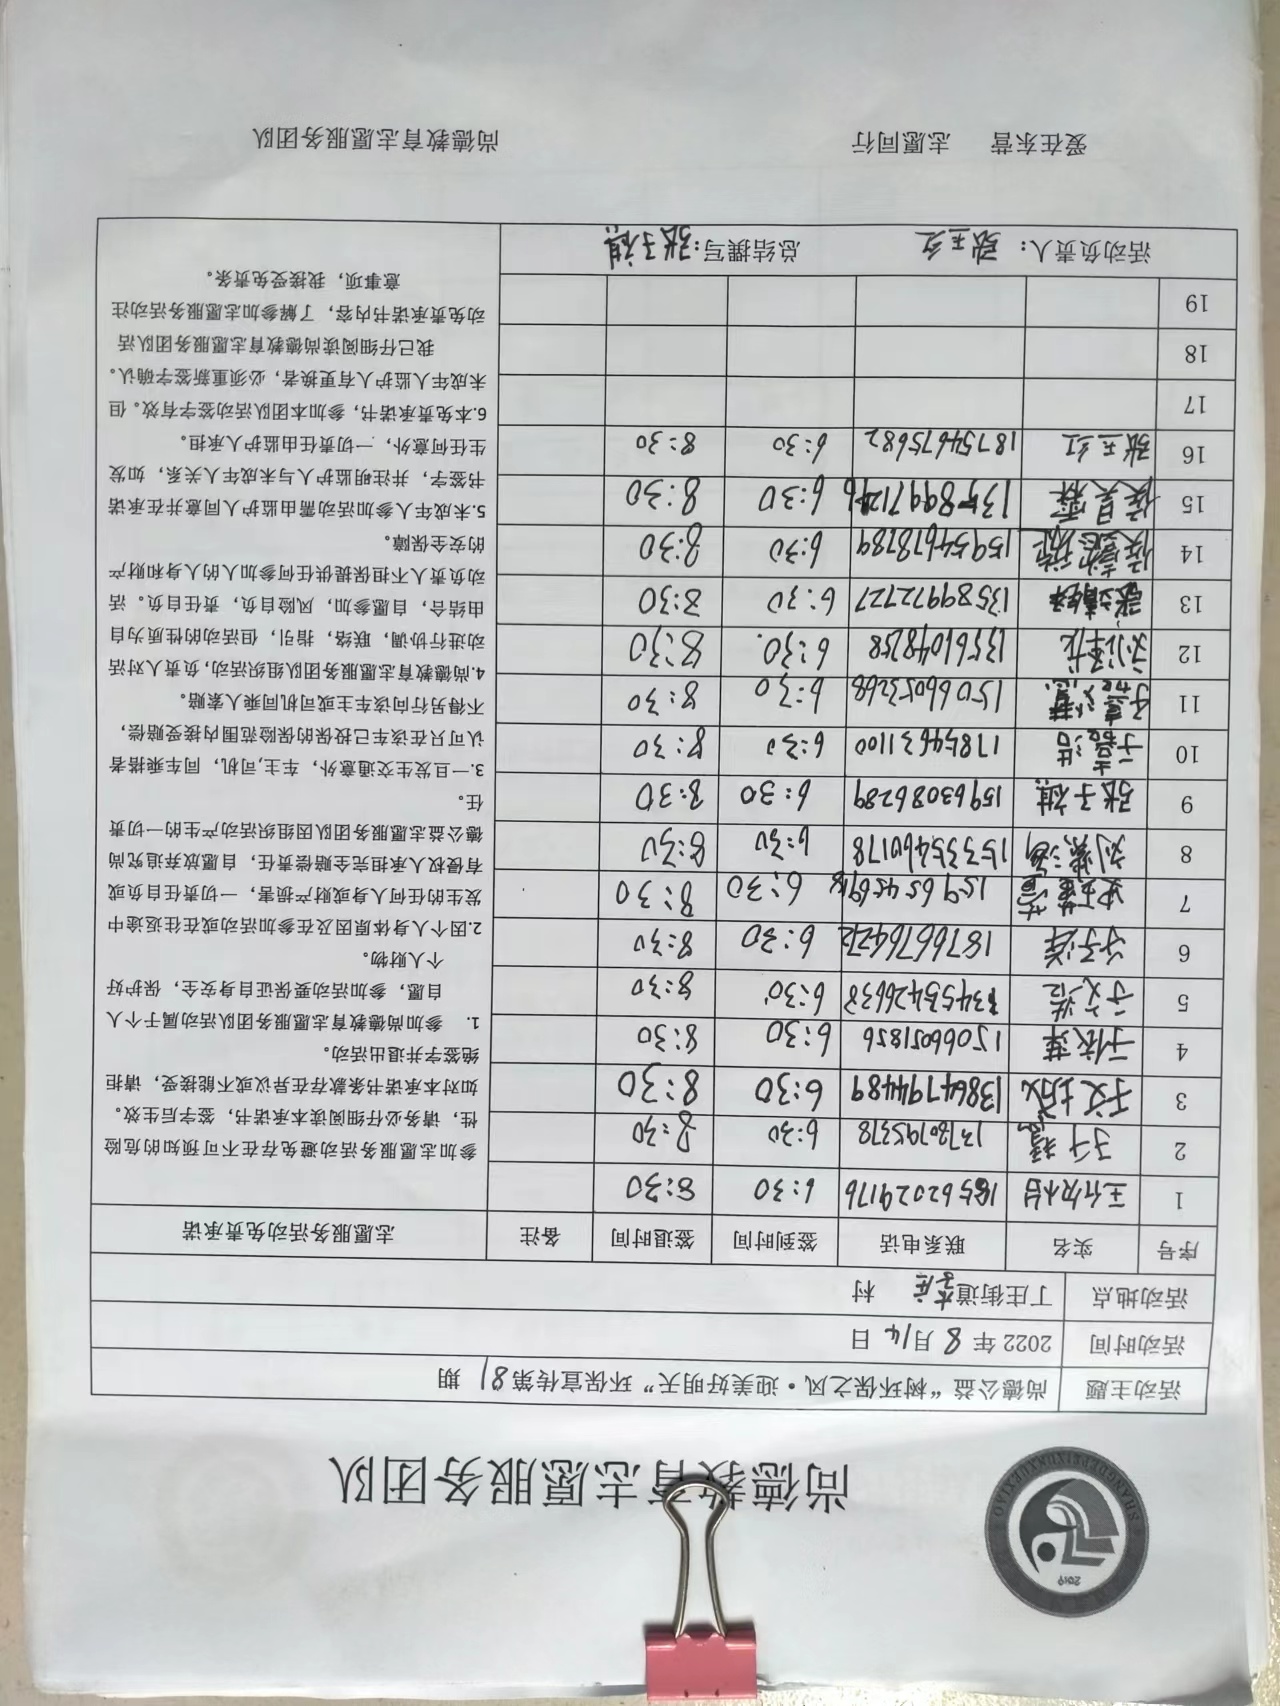 2019
SHANGDEPEIXUNXUEXIAO
尚德教育志愿服务团队
活动主题 尚德公益“树环保之风·迎美好明天”环保宣传第81期
活动时间 2022年8月14日
活动地点 丁庄街道 村
序号 实名 联系电话 签到时间 签退时间 备注 志愿服务活动免责承诺
1 18562029176 6:30 8:30
2 13780795378 6:30 8:30
3 13864794489 6:30 8:30
4 于依萍 15066051856 6:30 8:30
5 6:30 8:30
6 6:30 8:30
7 6:30 8:30
8 15335460178 6:30 8:30
9 张子祺 15963086289 6:30 8:30
10 17854631100 6:30 8:30
11 15066053268 6:30 8:30
12 13561048258 6:30 8:30
13 13589972727 6:30 8:30
14 15954678789 6:30 8:30
15 侯昊霖 6:30 8:30
16 张玉红 18754675682 6:30 8:30
17
18
19
参加志愿服务活动避免存在不可预知的危险
性，请务必仔细阅读本承诺书，签字后生效。
如对本承诺书条款存在异议或不能接受，请拒
绝签字并退出活动。
1. 参加尚德教育志愿服务团队活动属于个人
自愿，参加活动要保证自身安全，保护好
个人财物。
2.因个人身体原因及在参加活动或在往返途中
发生的任何人身或财产损害，一切责任自负或
有侵权人承担完全赔偿责任，自愿放弃追究尚
德公益志愿服务团队因组织活动产生的一切责
任。
3.一旦发生交通意外，车主,司机，同车乘搭者
认可只在该车已投保的保险范围内接受赔偿，
不得另行向该车主或司机同乘人索赔。
4.尚德教育志愿服务团队组织活动,负责人对活
动进行协调，联络，指引，但活动的性质为自
由结合，自愿参加，风险自负，责任自负。活
动负责人不担保提供任何参加人的人身和财产
的安全保障。
5.未成年人参加活动需由监护人同意并在承诺
书签字，并注明监护人与未成年人关系，如发
生任何意外，一切责任由监护人承担。
6.本免责承诺书，参加本团队活动签字有效。但
未成年人监护人有更换者，必须重新签字确认。
我已仔细阅读尚德教育志愿服务团队活
动免责承诺书内容，了解参加志愿服务活动注
意事项，我接受免责条。
活动负责人：张玉红 总结撰写：张子祺
爱在东营 志愿同行 尚德教育志愿服务团队